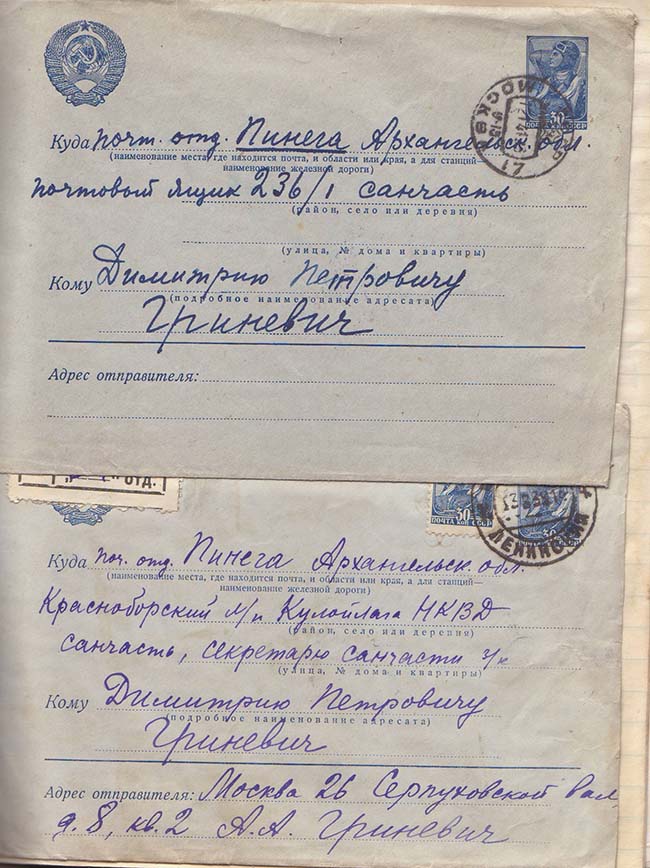 30
ПОЧТА СССР
МОСКВА
17
Куда почт. отд. Пинега Архангельск. обл.
(наименование места, где находится почта, и области или края, а для станций—
наименование железной дороги)
почтовый ящик 236/1 санчасть
(район, село или деревня)
(улица, № дома и квартиры)
Кому Димитрию Петровичу
(подробное наименование адресата)
Гриневич
Адрес отправителя:
ОТД.
30
ПОЧТА КОП СССР
30
ЛЕНИНСКИЙ
Куда поч. отд. Пинега Архангельск. обл.
(наименование места, где находится почта, и области или края, а для станций—
наименование железной дороги)
Красноборский л/п Кулойлага НКВД
(район, село или деревня)
санчасть, секретарю санчасти з/к
(улица, № дома и квартиры)
Кому Димитрию Петровичу
(подробное наименование адресата)
Гриневич
Адрес отправителя: Москва 26 Серпуховской Вал
д. 8, кв. 2 А. А. Гриневич